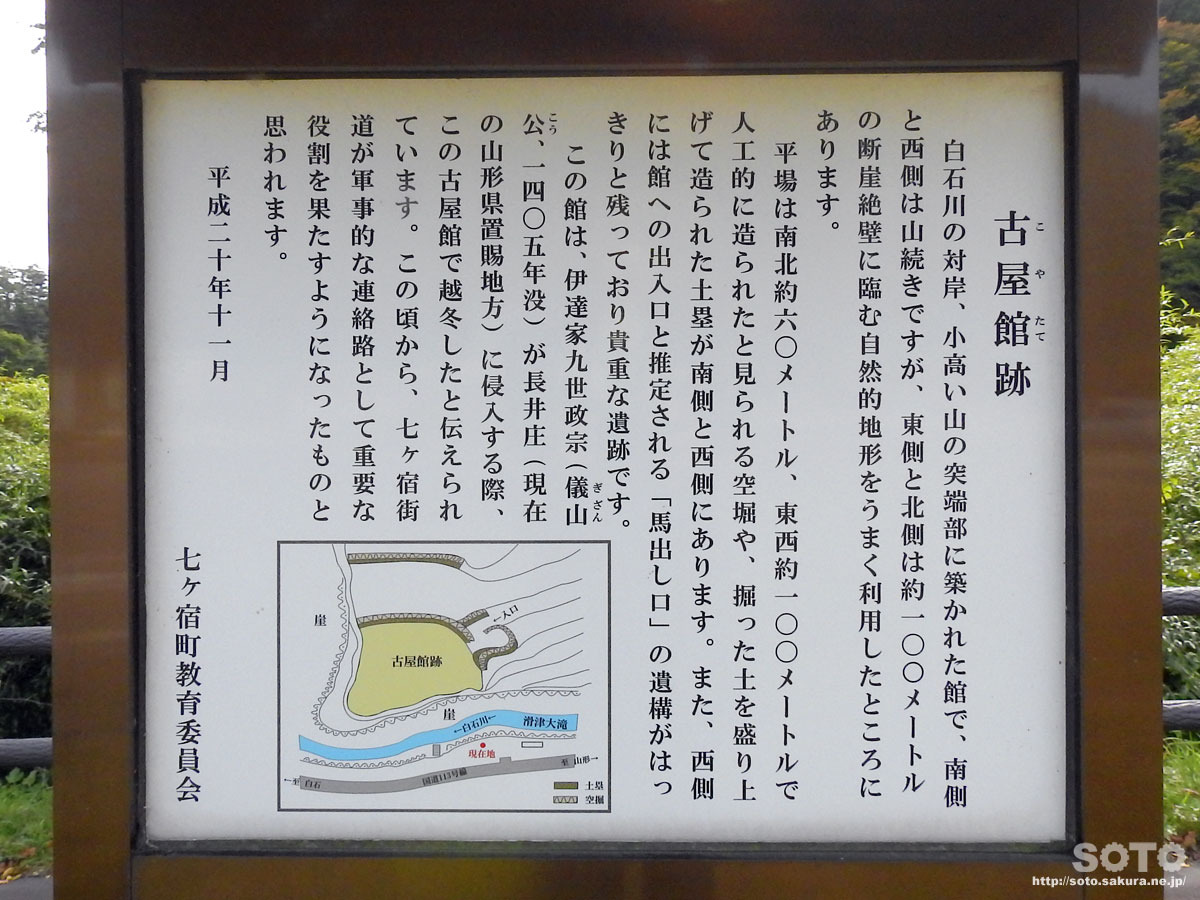 古屋館跡
こ や たて
白石川の対岸、小高い山の突端部に築かれた館で、南側
と西側は山続きですが、東側と北側は約一〇〇メートル
の断崖絶壁に臨む自然的地形をうまく利用したところに
あります。
平場は南北約六〇メートル、東西約一〇〇メートルで
人工的に造られたと見られる空堀や、掘った土を盛り上
げて造られた土塁が南側と西側にあります。また、西側
には館への出入口と推定される「馬出し口」の遺構がはっ
きりと残っており貴重な遺跡です。
この館は、伊達家九世政宗(儀山
ぎざん
公、一四〇五年没)が長井庄(現在
こう
の山形県置賜地方)に侵入する際、
この古屋館で越冬したと伝えられ
ています。この頃から、七ヶ宿街
道が軍事的な連絡路として重要な
役割を果たすようになったものと
思われます。
平成二十年十一月
七ヶ宿町教育委員会
崖
←入口
古屋館跡
崖
←白石川←
滑津大滝
現在地
←至 白石
国道113号線
至 山形→
土塁
空掘
SOTO
http://soto.sakura.ne.jp/